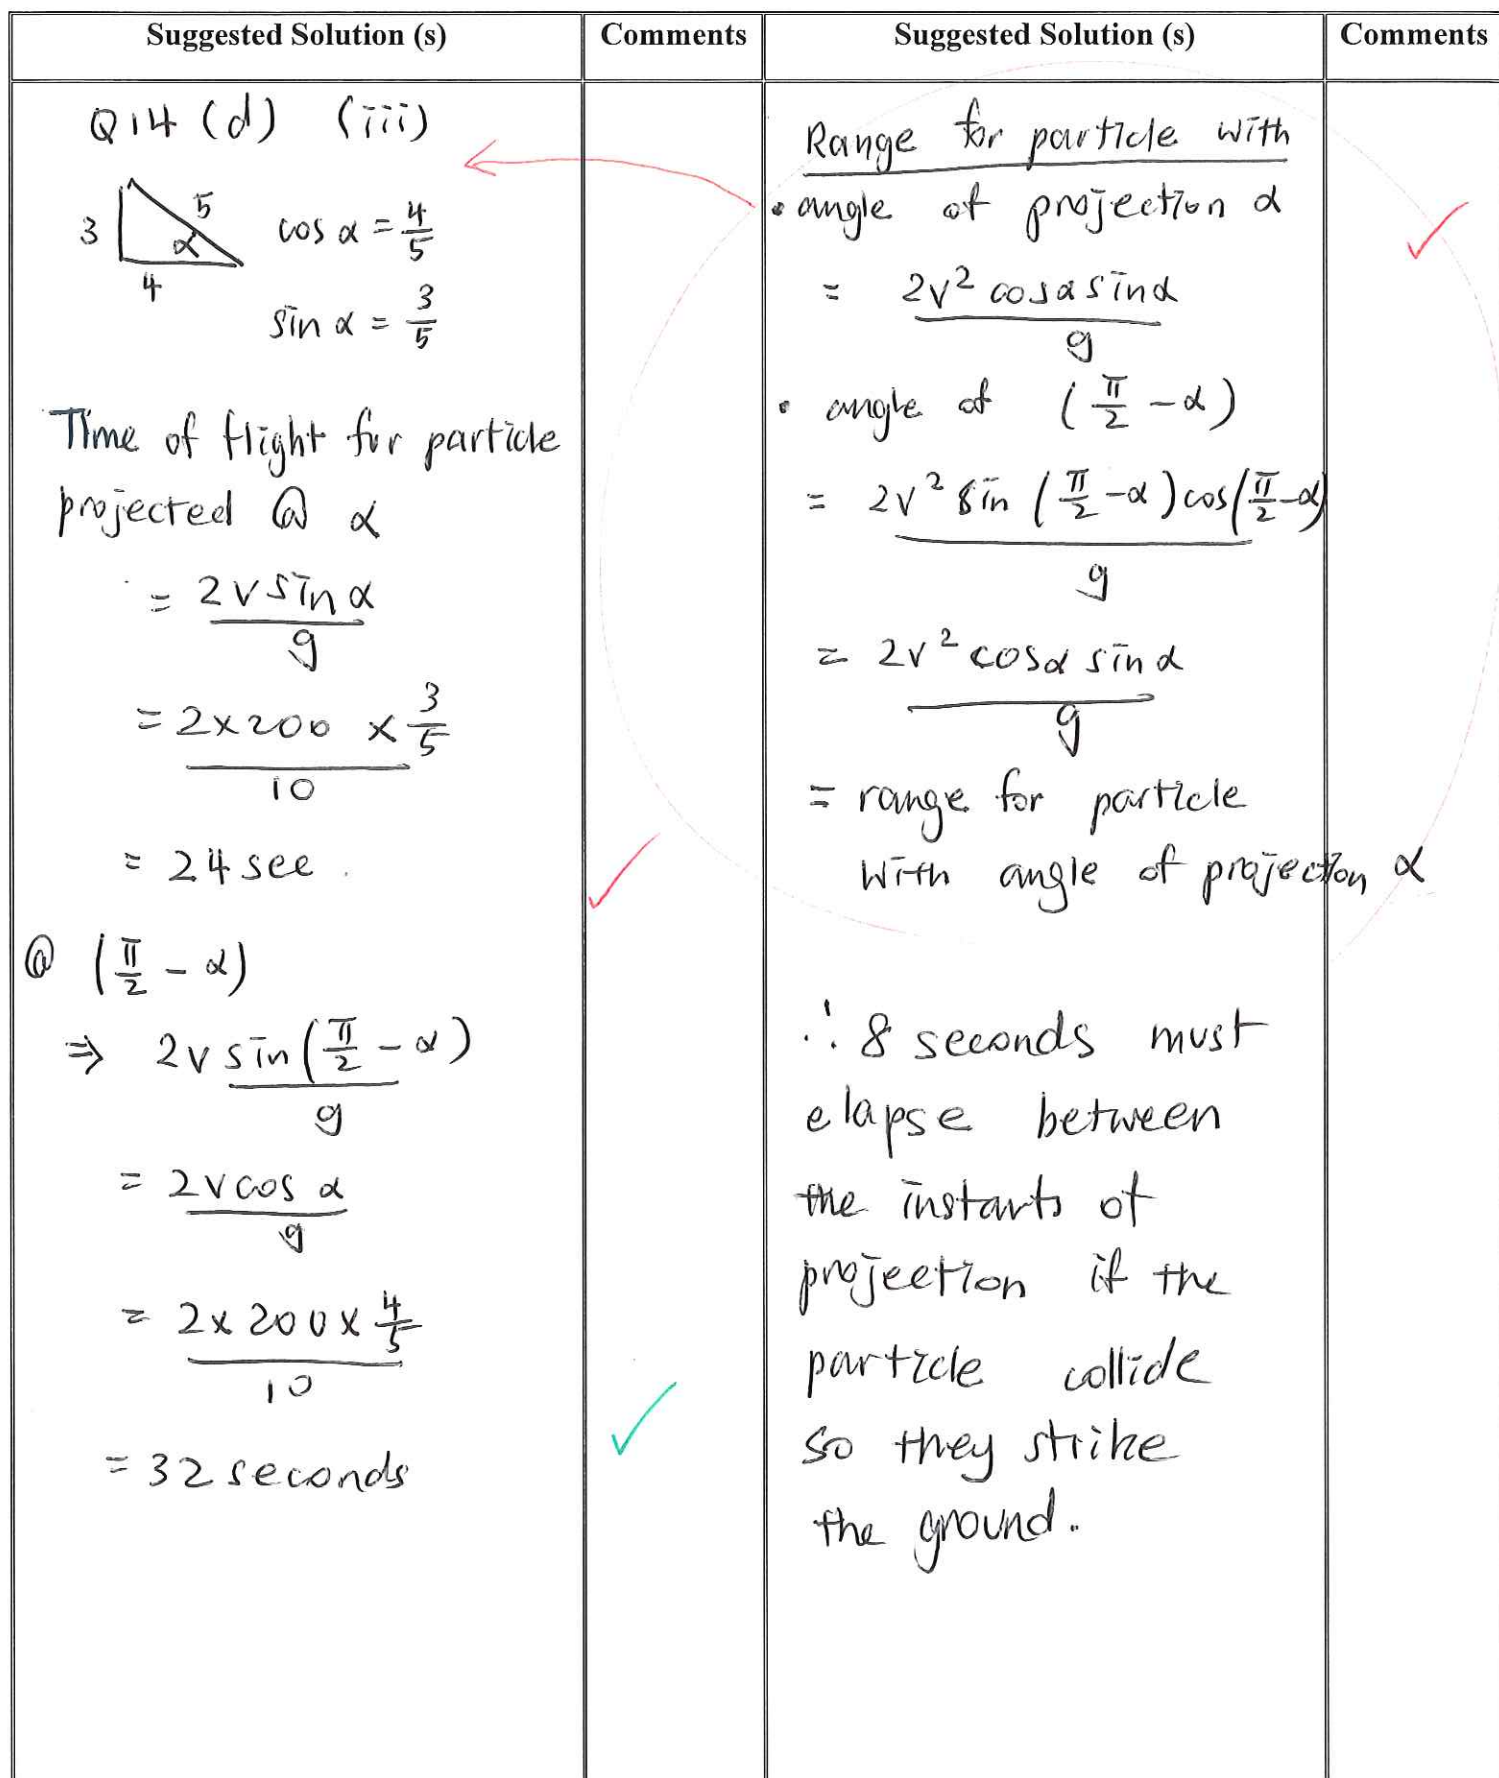 Suggested Solution (s)
Comments
Suggested Solution (s)
Comments
Q14 (d) (iii)
3
5
α
4
cos α = 4/5
sin α = 3/5
Time of flight for particle
projected @ α
= 2v sin α / g
= 2 × 200 × 3/5 / 10
= 24 sec.
@ (π/2 - α)
⇒ 2v sin(π/2 - α) / g
= 2v cos α / g
= 2 × 200 × 4/5 / 10
= 32 seconds
Range for particle with
• angle of projection α
= 2v² cosα sinα / g
• angle of (π/2 - α)
= 2v² sin(π/2 - α) cos(π/2 - α) / g
= 2v² cosα sinα / g
= range for particle
with angle of projection α
∴ 8 seconds must
elapse between
the instants of
projection if the
particle collide
so they strike
the ground.